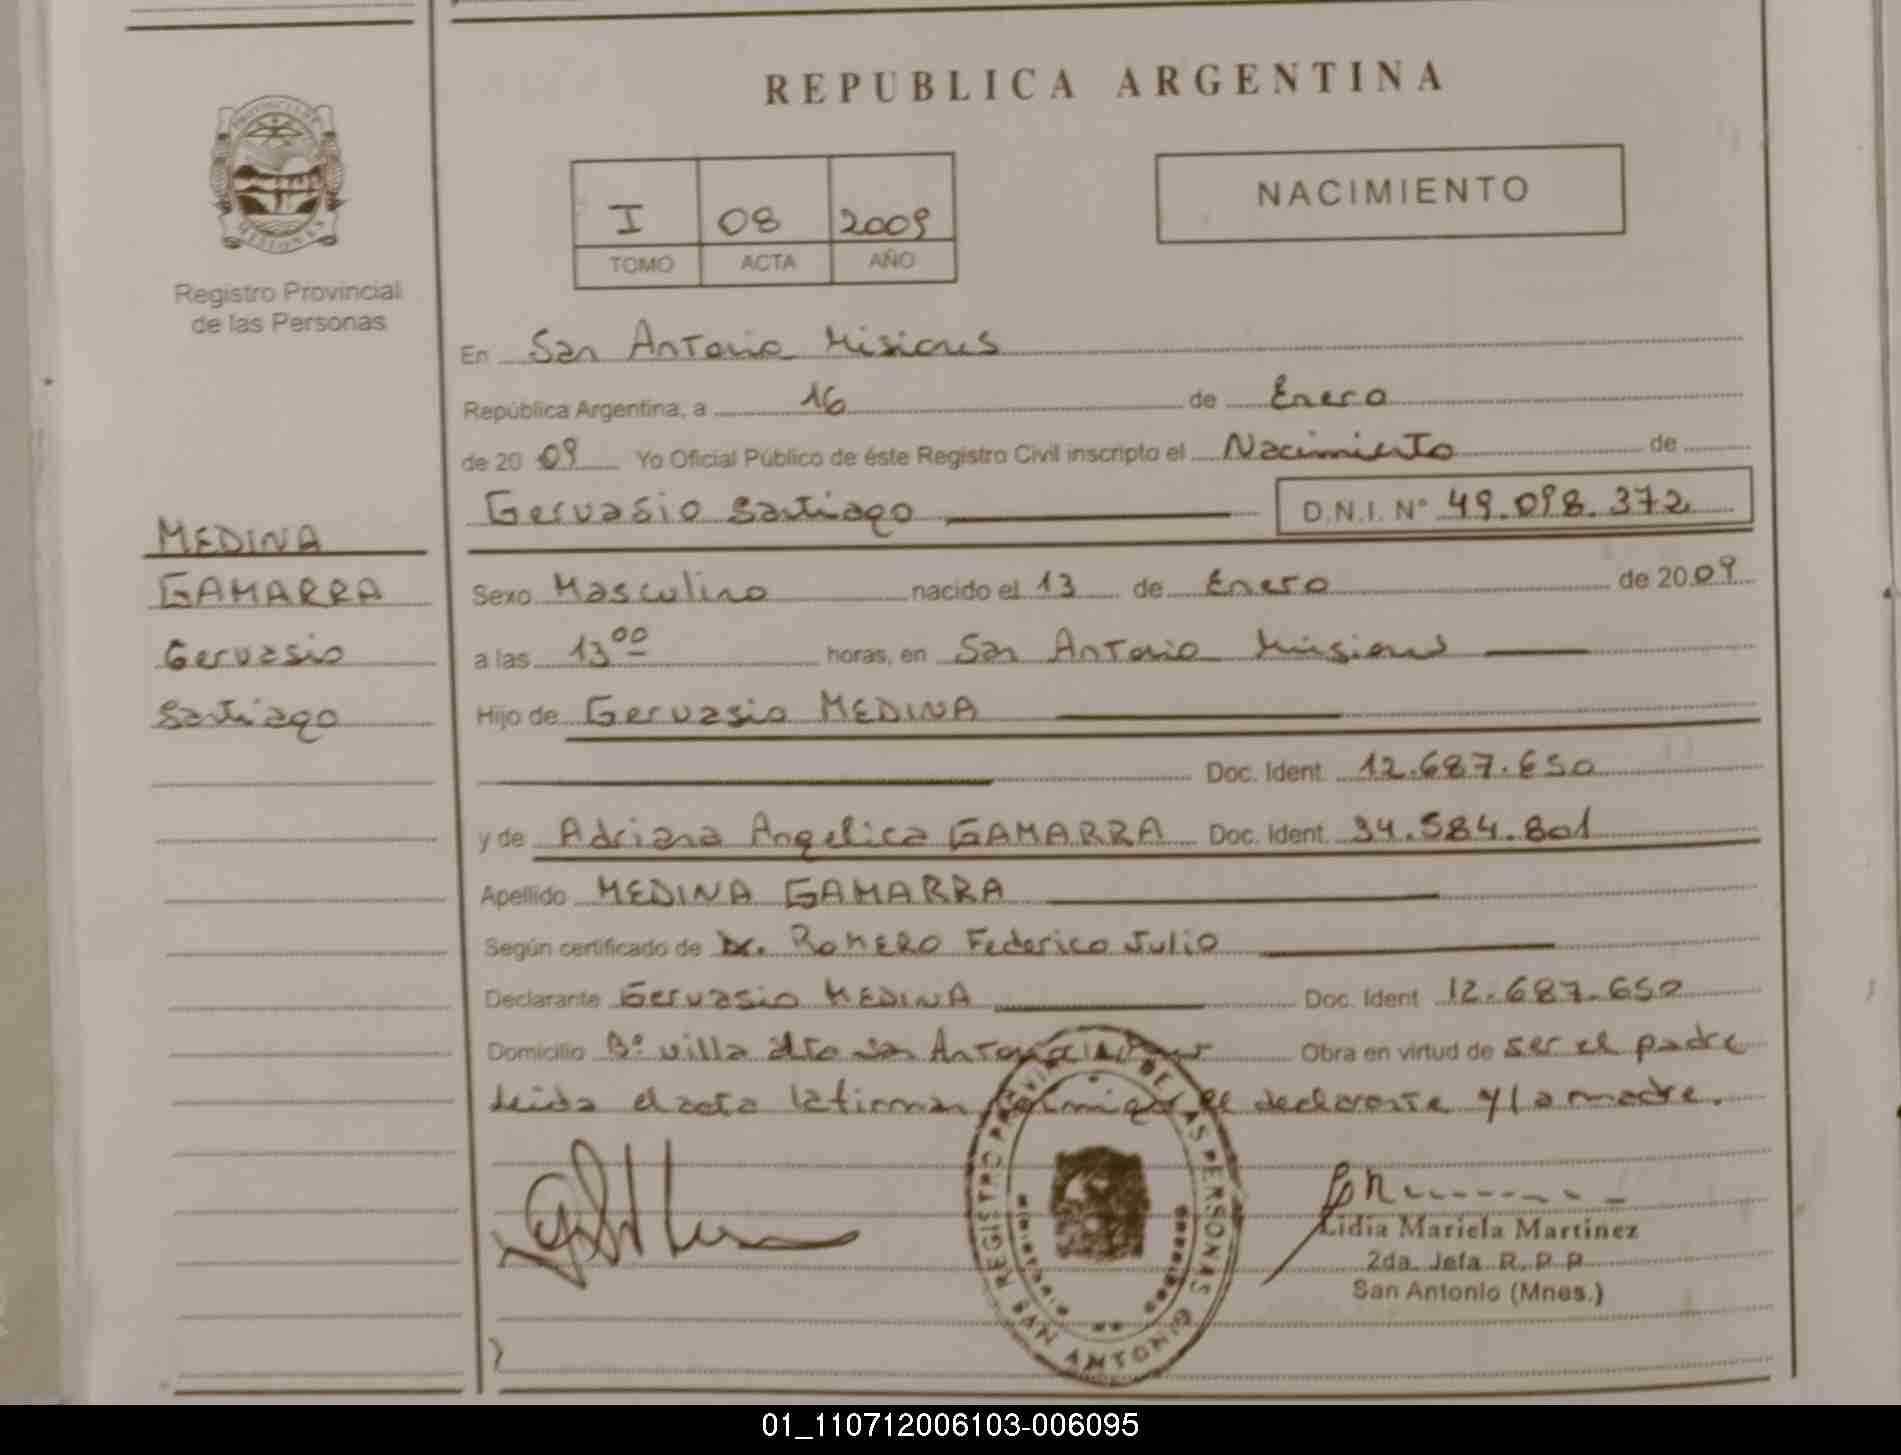 REPUBLICA ARGENTINA
PROVINCIA DE MISIONES
Registro Provincial
de las Personas
I 08 2009
TOMO ACTA AÑO
NACIMIENTO
En San Antonio Misiones
República Argentina, a 16 de Enero
de 20 09 Yo Oficial Público de éste Registro Civil inscripto el Nacimiento de
Gervasio Santiago D.N.I. Nº 49.098.372
MEDINA
GAMARRA
Gervasio
Santiago
Sexo Masculino nacido el 13 de Enero de 20 09
a las 13 00 horas, en San Antonio Misiones
Hijo de Gervasio MEDINA
Doc. Ident. 12.687.650
y de Adriana Angelica GAMARRA Doc. Ident. 34.584.801
Apellido MEDINA GAMARRA
Según certificado de Dr. ROMERO Federico Julio
Declarante Gervasio MEDINA Doc. Ident 12.687.650
Domicilio Bº villa alto San Antonio Obra en virtud de ser el padre
Leida el acta la firman conmigo el declarante y la madre.
REGISTRO PROVINCIAL DE LAS PERSONAS
SAN ANTONIO
Lidia Mariela Martinez
2da. Jefa R. P. P.
San Antonio (Mnes.)
01_110712006103-006095